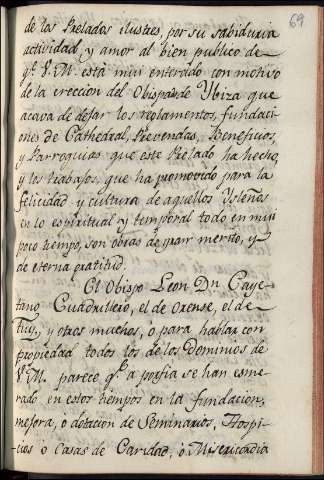 69
de los Prelados ilustres, por su sabiduria
actividad, y amor al bien publico de
qe. V.M. està mui enterado con motivo
de la ereccion del Obispado de Ybiza que
acava de dejar los reglamentos, fundaci-
ones de Cathedral, Prevendas, Beneficios,
y Parroquias que este Prelado ha hecho,
y los trabajos, que ha promovido para la
felicidad y cultura de aquellos Ysleños
en lo espiritual y temporal todo en mui
poco tiempo, son obras de gran merito, y
de eterna gratitud.
El Obispo Leon Dn. Caye-
tano Quadrillero, el de Orense, el de
Tuy, y otros muchos, o para hablar con
propiedad todos los de los Dominios de
V.M. parece qe. a porfia se han esme-
rado en estos tiempos en la fundacion,
mejora, o dotacion de Seminarios, Hospi-
cios o Casas de Caridad, ò Misericordia